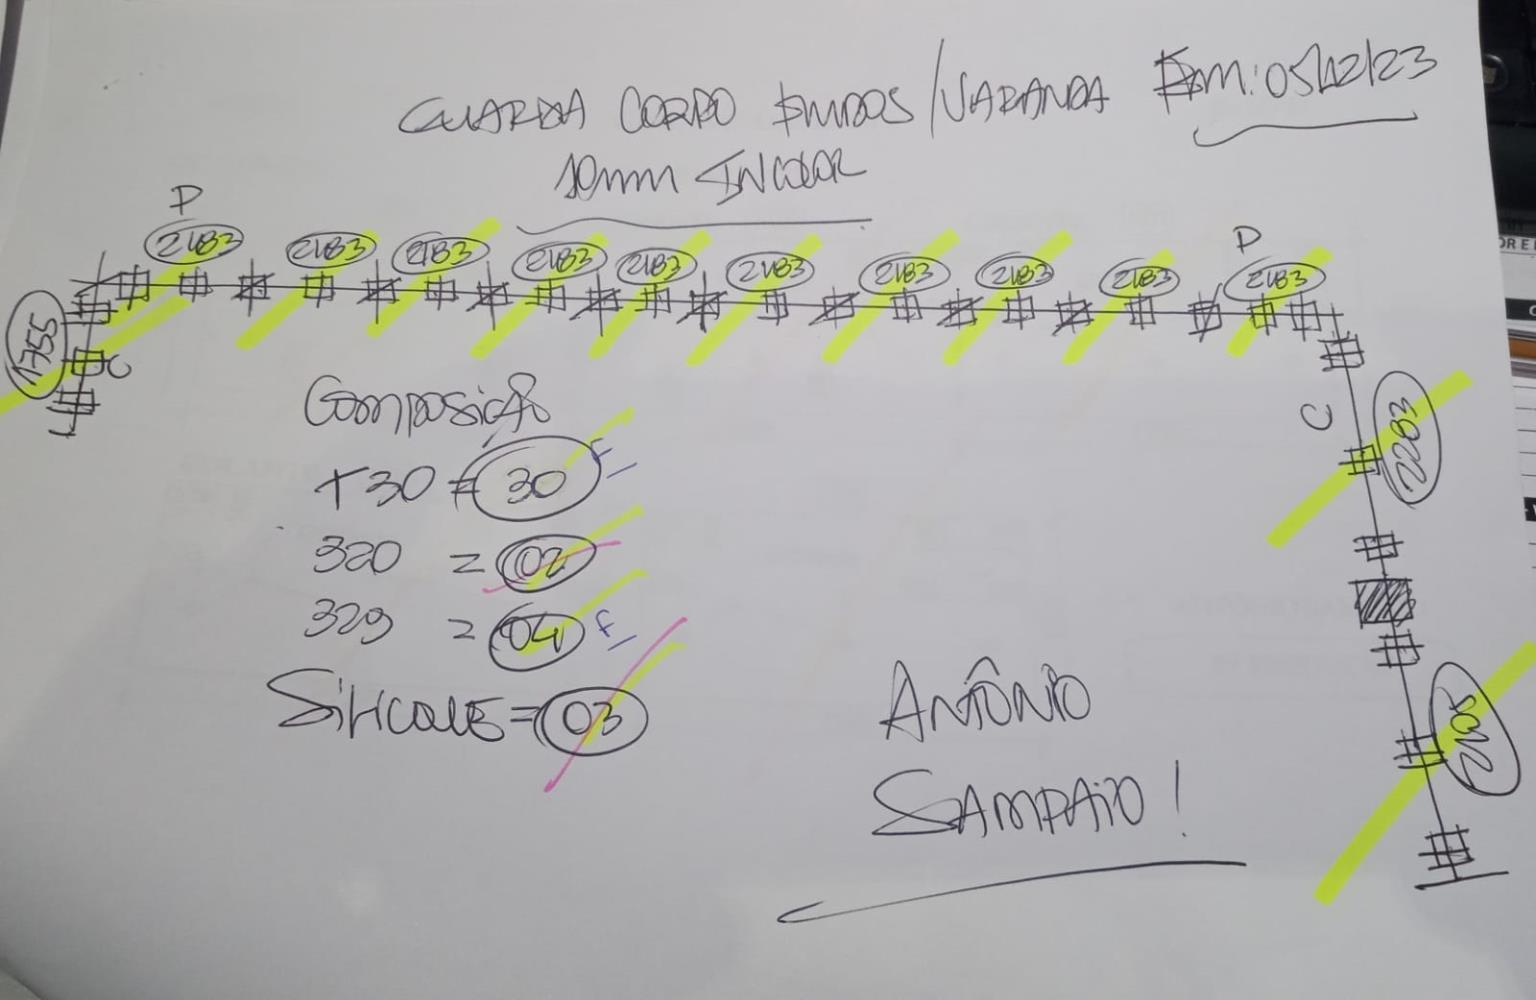 GUARDA CORPO FUNDOS/VARANDA EM: 05/12/23
10mm INCOLOR
P
P
2183 2183 2183 2183 2183 2183 2183 2183 2183 2183
1755
C
C
Composição
T30 = 30
320 = 02
329 = 04
SILICONE = 03
ANTÔNIO
SAMPAIO!